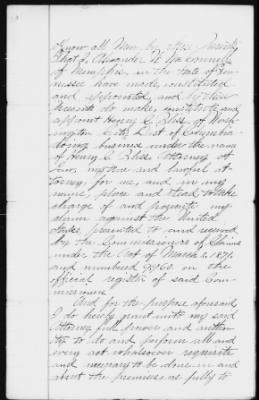 Know all Men by these Presents,
that I, Alexander M. 
of Memphis, in the State of Ten-
nessee have made, constituted
and appointed, and by these
Presents do make, constitute and
appoint Henry C. of Wash-
ington City, Dist of Columbia
doing business under the name
of Henry C. Attorney at
Law, my true and lawful at-
torney for me, and in my
name, place and stead, to take
charge of and prosecute my
claim against the United
States, presented to and received
by the Commissioners of Claims
under the Act of March 3, 1871,
and numbered on the
official register of said Com-
missioners.
And for the purpose aforesaid
I do hereby grant unto my said
Attorney full power and autho-
rity to do and perform all and
every act whatsoever requisite
and necessary to be done in and
about the premises as fully to